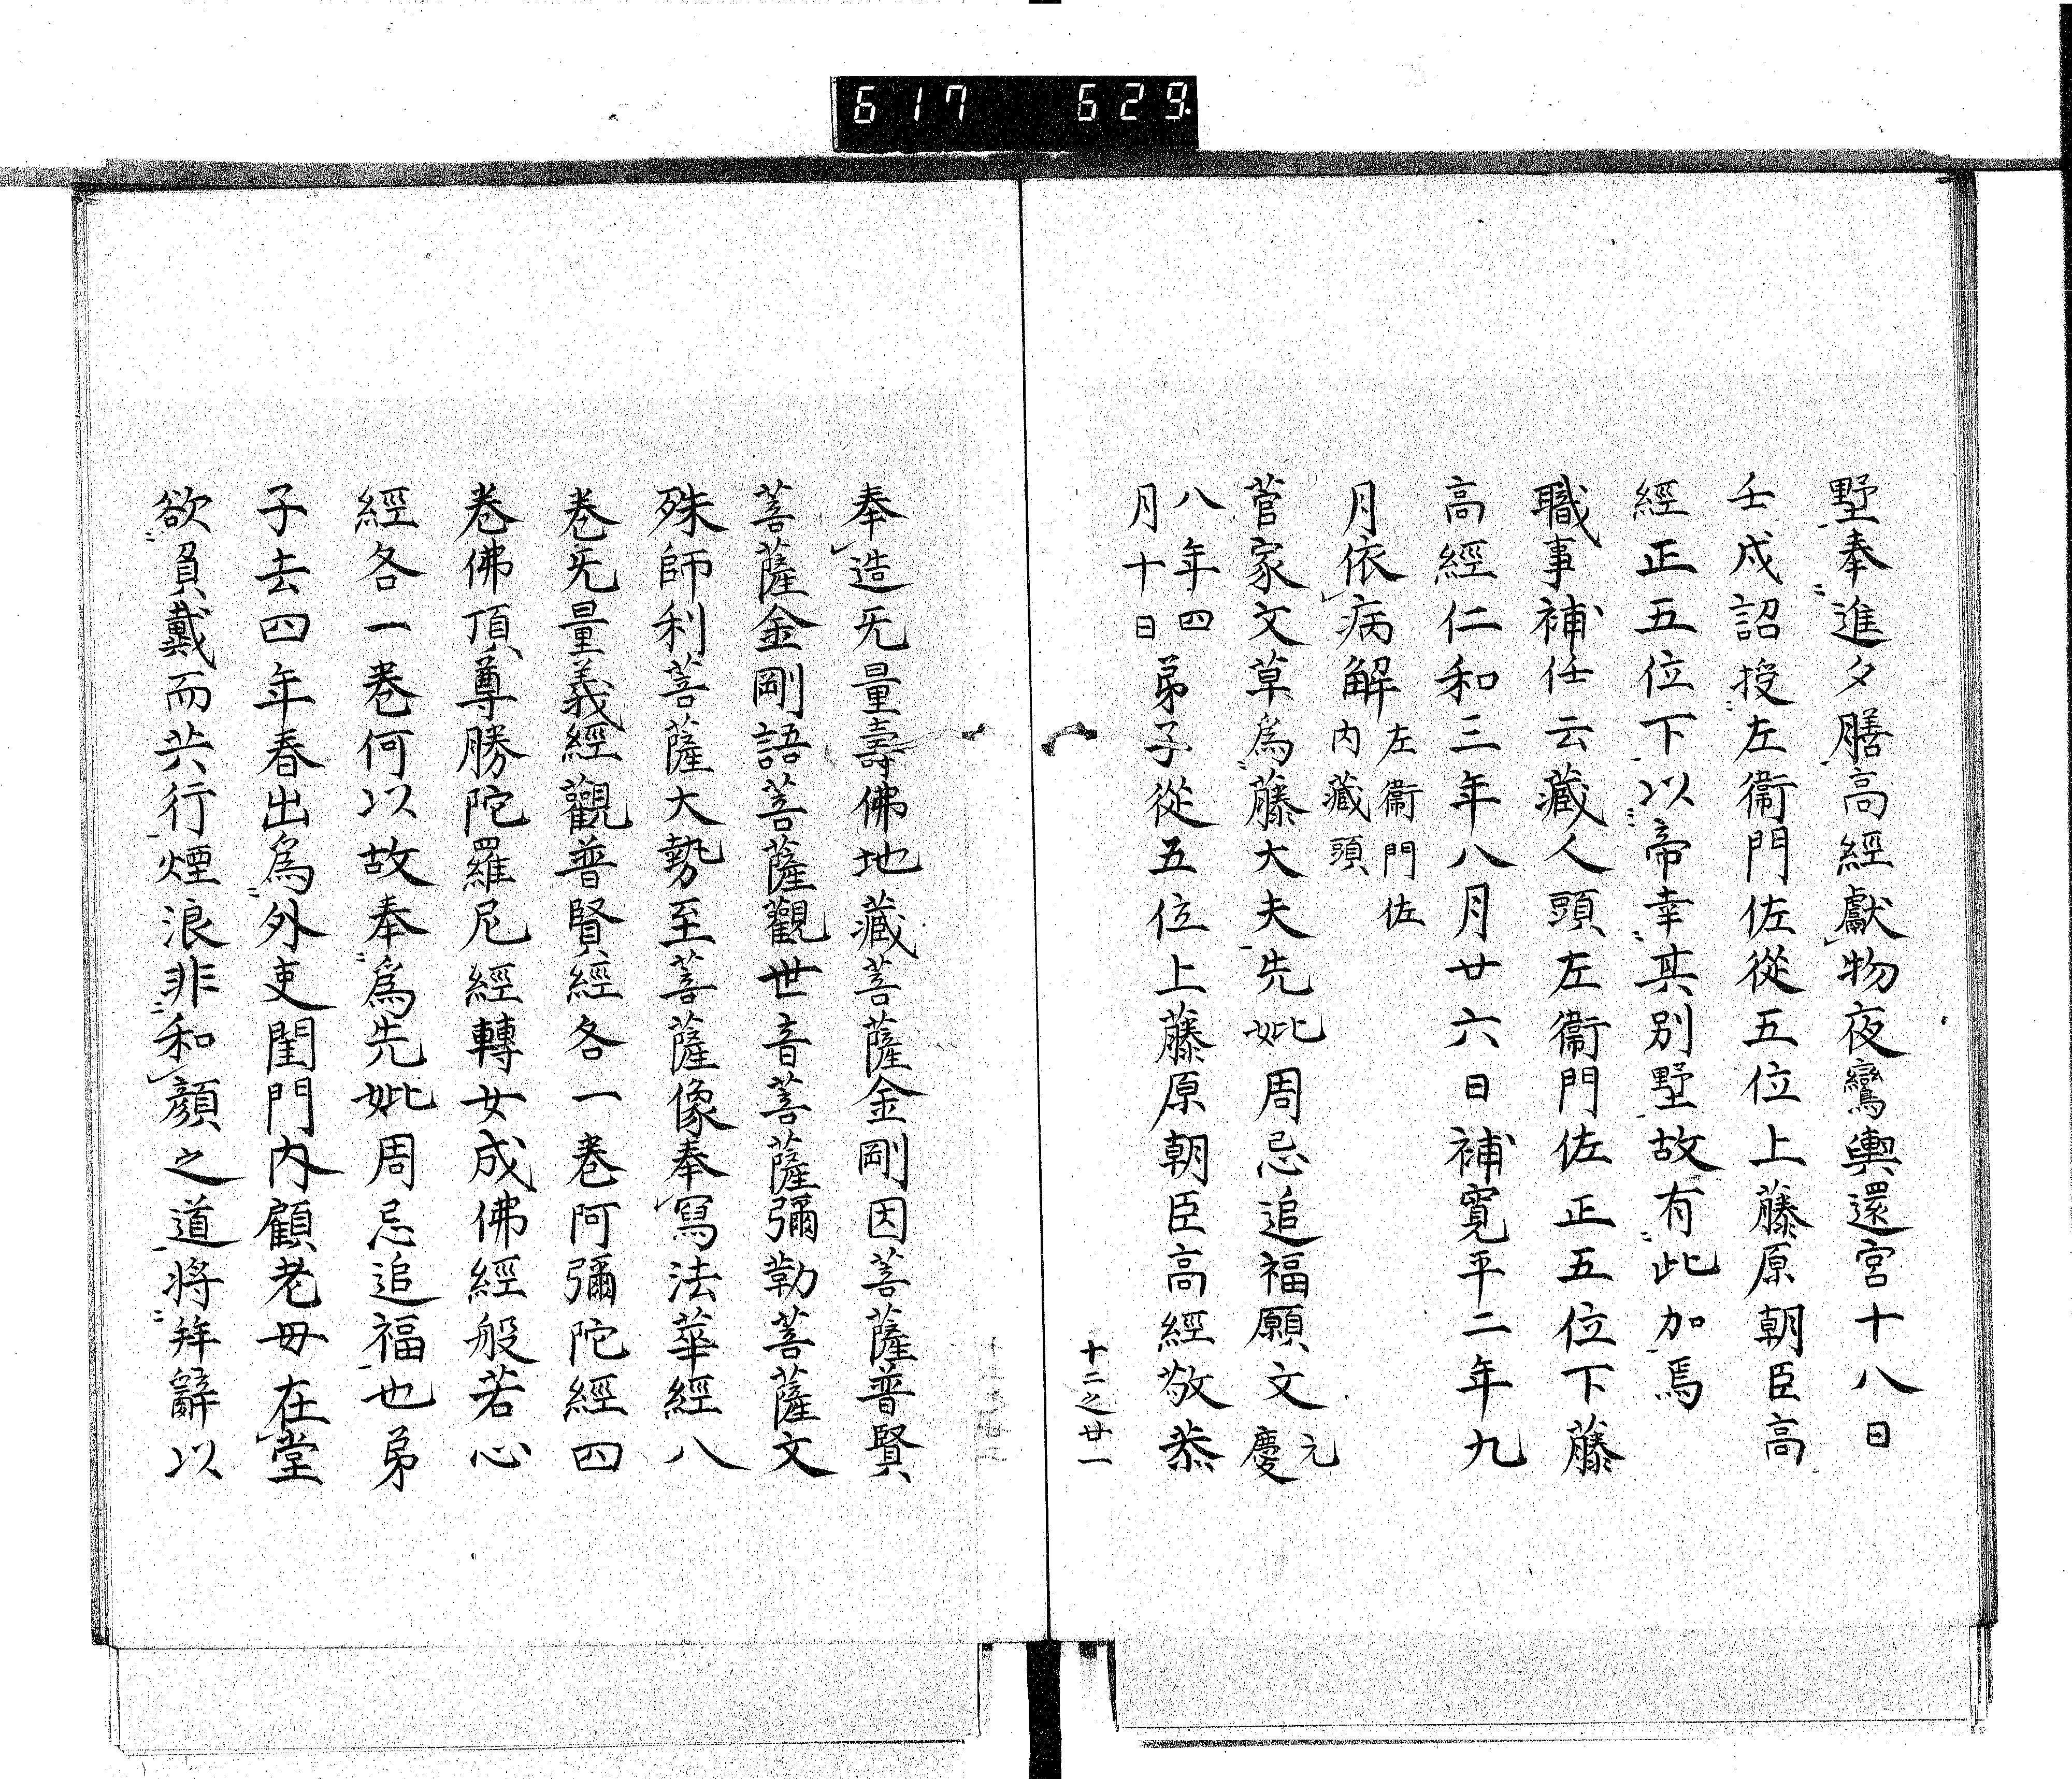 617 629
墅奉進夕膳高經獻物夜鸞輿還宮十八日
壬戌詔授左衞門佐從五位上藤原朝臣高
經正五位下以帝幸其別墅故有此加焉
職事補任云藏人頭左衞門佐正五位下藤
高經仁和三年八月廿六日補寬平二年九
月依病解左衞門佐
內藏頭
菅家文草爲藤大夫先妣周忌追福願文元慶
八年四
月十日弟子從五位上藤原朝臣高經敬恭
十二之廿一
奉造旡量壽佛地藏菩薩金剛因菩薩普賢
菩薩金剛語菩薩觀世音菩薩彌勒菩薩文
殊師利菩薩大勢至菩薩像奉寫法華經八
卷旡量義經觀普賢經各一卷阿彌陀經四
卷佛頂尊勝陀羅尼經轉女成佛經般若心
經各一卷何以故奉爲先妣周忌追福也弟
子去四年春出爲外吏閨門內顧老毋在堂
欲負戴而共行煙浪非和顏之道將拜辭以